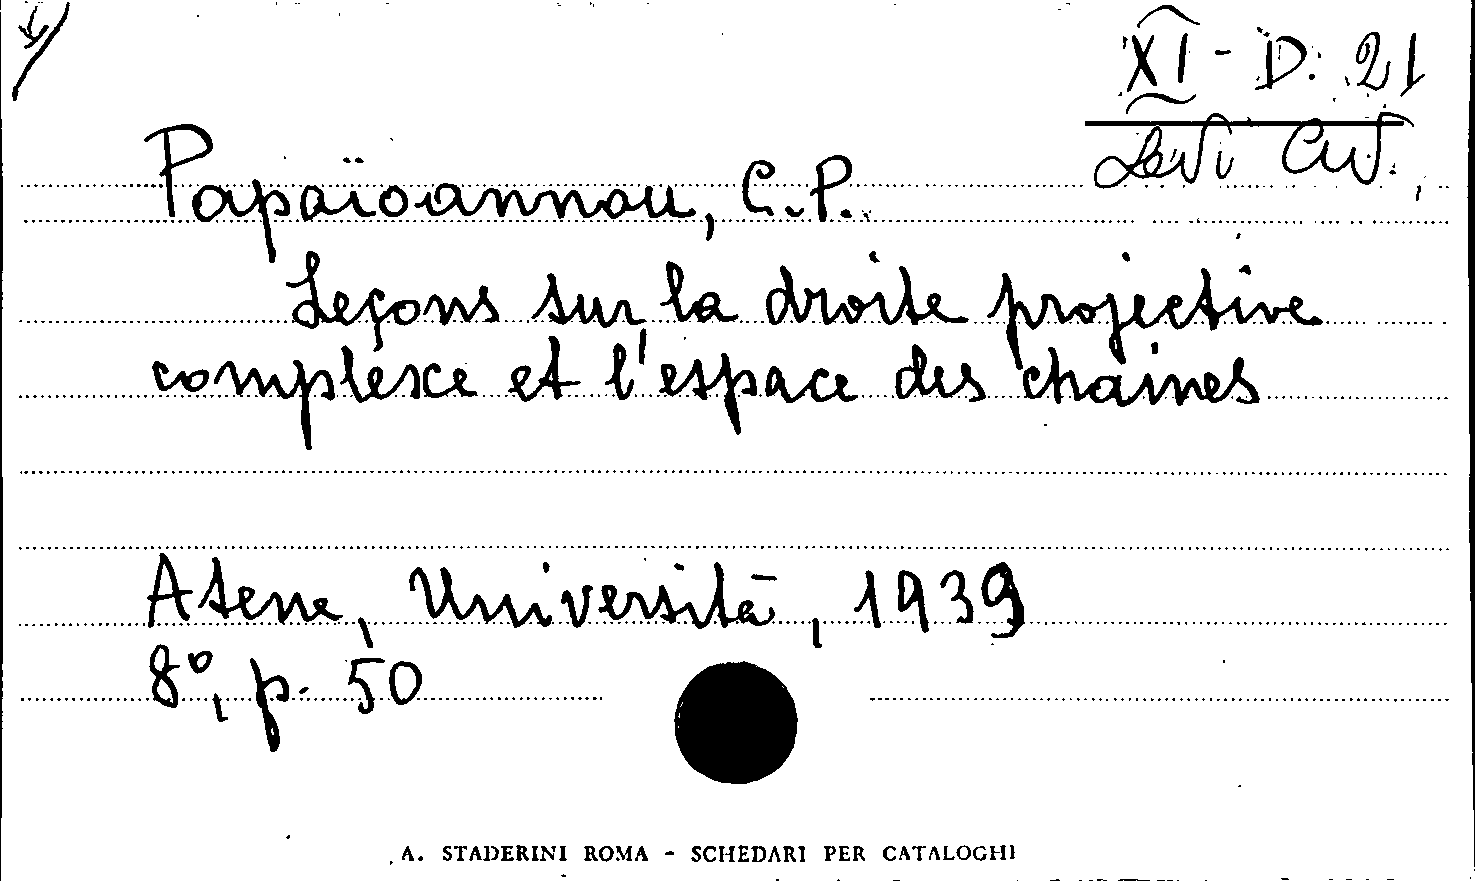 XI - D. 21
Levi Civ.
Papaïoannou, C.P.
Leçons sur la droite projective
complexe et l'espace des chaines
Atene, Università, 1939
8º, p. 50
A. STADERINI ROMA - SCHEDARI PER CATALOGHI